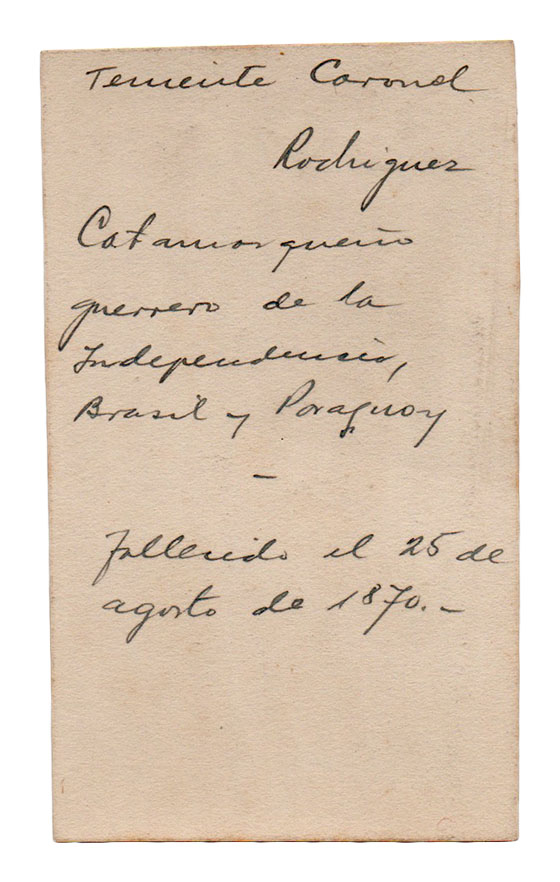 Teniente Coronel
Rodriguez
Catamarqueño
guerrero de la
Independencia,
Brasil y Paraguay
-
fallecido el 25 de
agosto de 1870.-